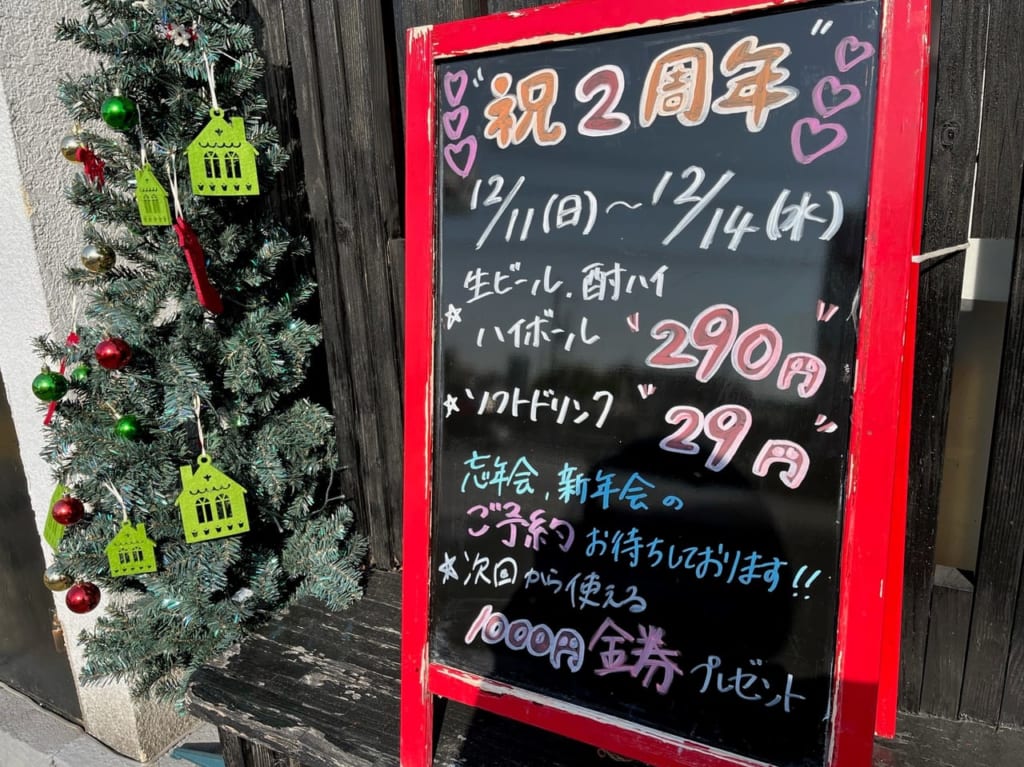 "祝2周年"
12/11(日)～12/14(水)
生ビール、酎ハイ
☆ハイボール 290円
☆ソフトドリンク 29円
忘年会、新年会の
ご予約お待ちしております!!
☆次回から使える
1000円金券プレゼント